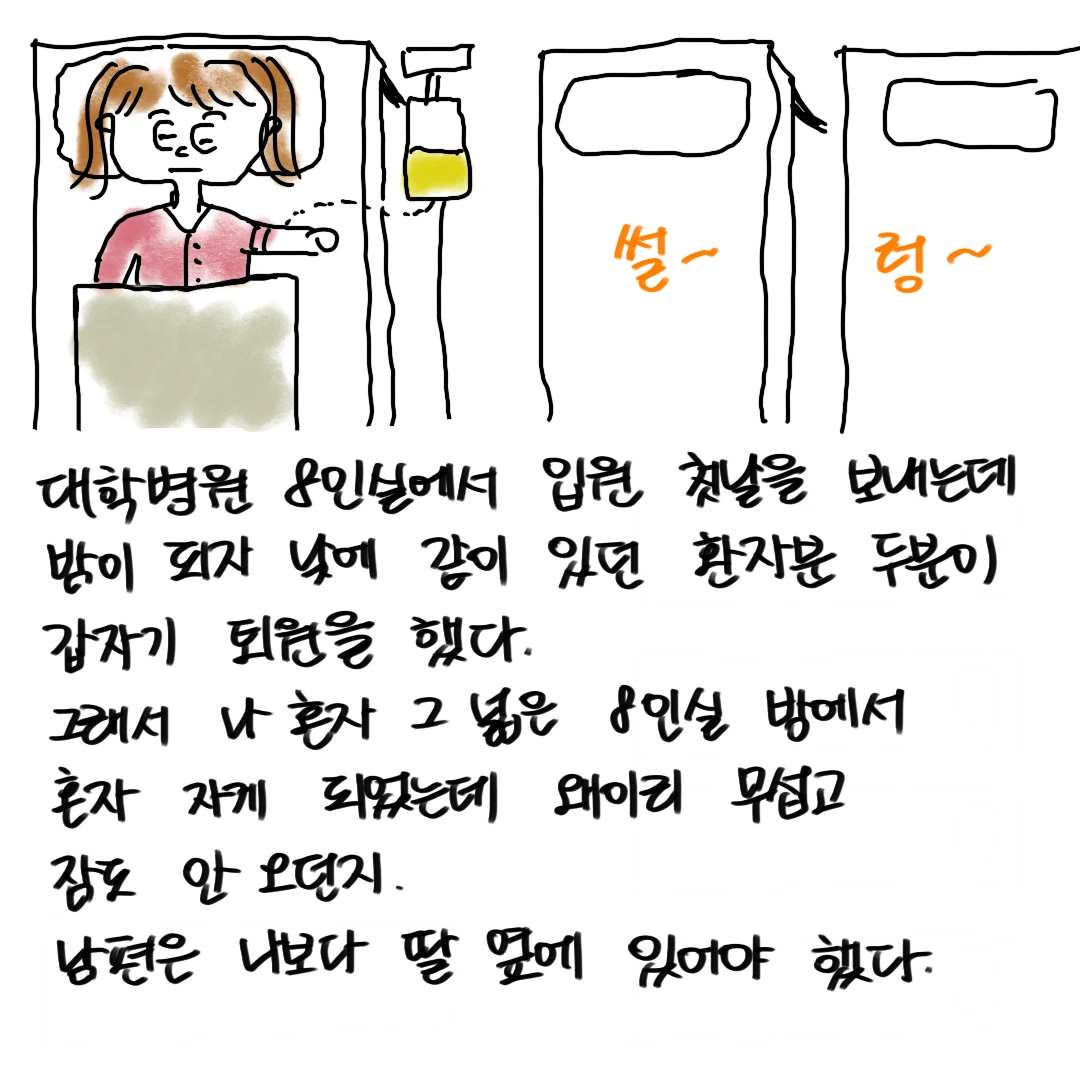 썰~ 렁~
대학병원 8인실에서 입원 첫날을 보내는데
밤이 되자 낮에 같이 있던 환자분 두분이
갑자기 퇴원을 했다.
그래서 나 혼자 그 넓은 8인실 방에서
혼자 자게 되었는데 왜이리 무섭고
잠도 안 오던지.
남편은 나보다 딸 옆에 있어야 했다.